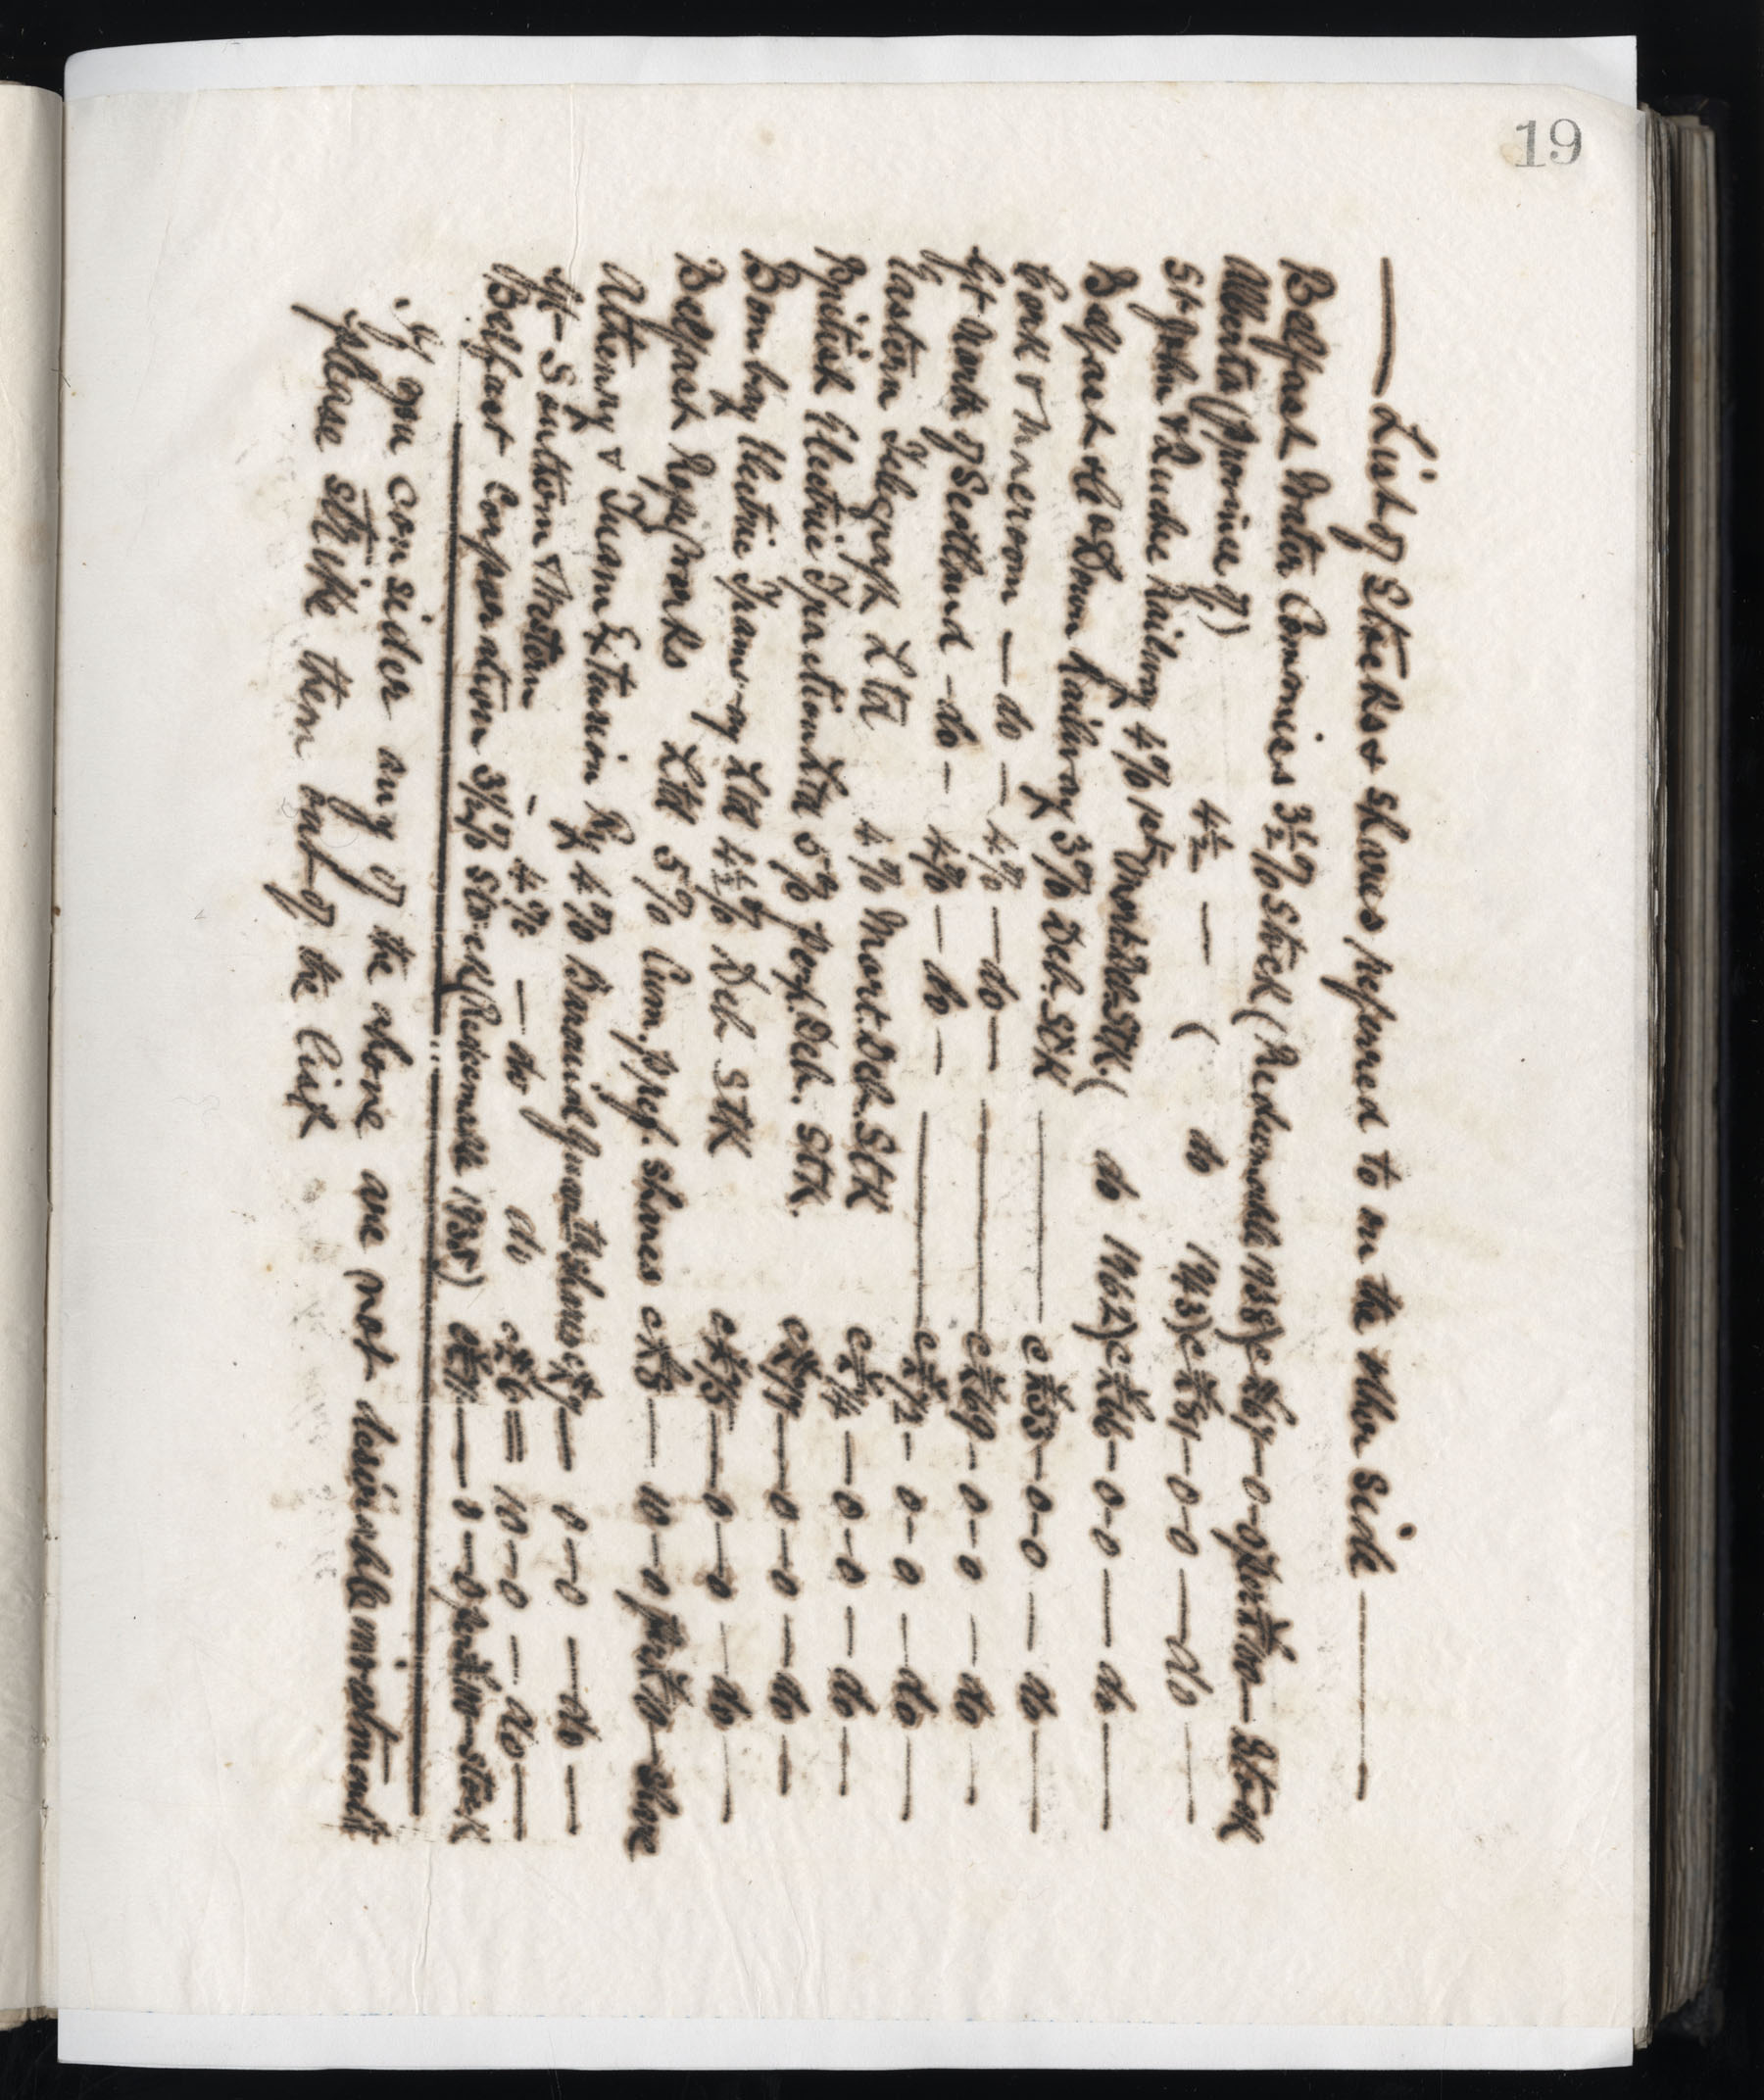 19
— List of Stocks & shares referred to on the other side —
Belfast Water Comsioners 3½% Stock (Redeemable 1938) @ £67-0-0 per £100 Stock
Alberta (Province of) 4½ — ( do 1943) @ £81-0-0 — do —
St John & Quebec Railway 4% 1st Mort. Deb. Stk. ( do 1962) @ £66-0-0 — do —
Belfast & Co Down Railway 3% Deb. Stk — @ £53-0-0 — do —
Cork & Mncroom — do — 4% — do — — @ £69-0-0 — do —
Gt North of Scotland — do — 4% — do — — @ £72-0-0 — do —
Eastern Telegraph Ltd 4% Mort. Deb. Stk @ £74-0-0 — do —
British Electric Traction Ltd 5% perp. Deb. Stk. @ £77-0-0 — do —
Bombay Electric Tramway Ltd 4½% Deb Stk @ £75-0-0 — do —
Belfast Ropeworks Ltd 5% Cum. Pref. shares @ — 10-0 per £10 share
Athenry & Tuam Extension Ry 4% Guarntd shares @ £7-0-0 — do —
Gt Southern & Western - 4% — do do @ £6=10-0 — do —
Belfast Corporation 3½% Stock (Redeemable 1935) — 0-0 per £100 stock
If you consider any of the above are not desirable investments
please strike them out of the list